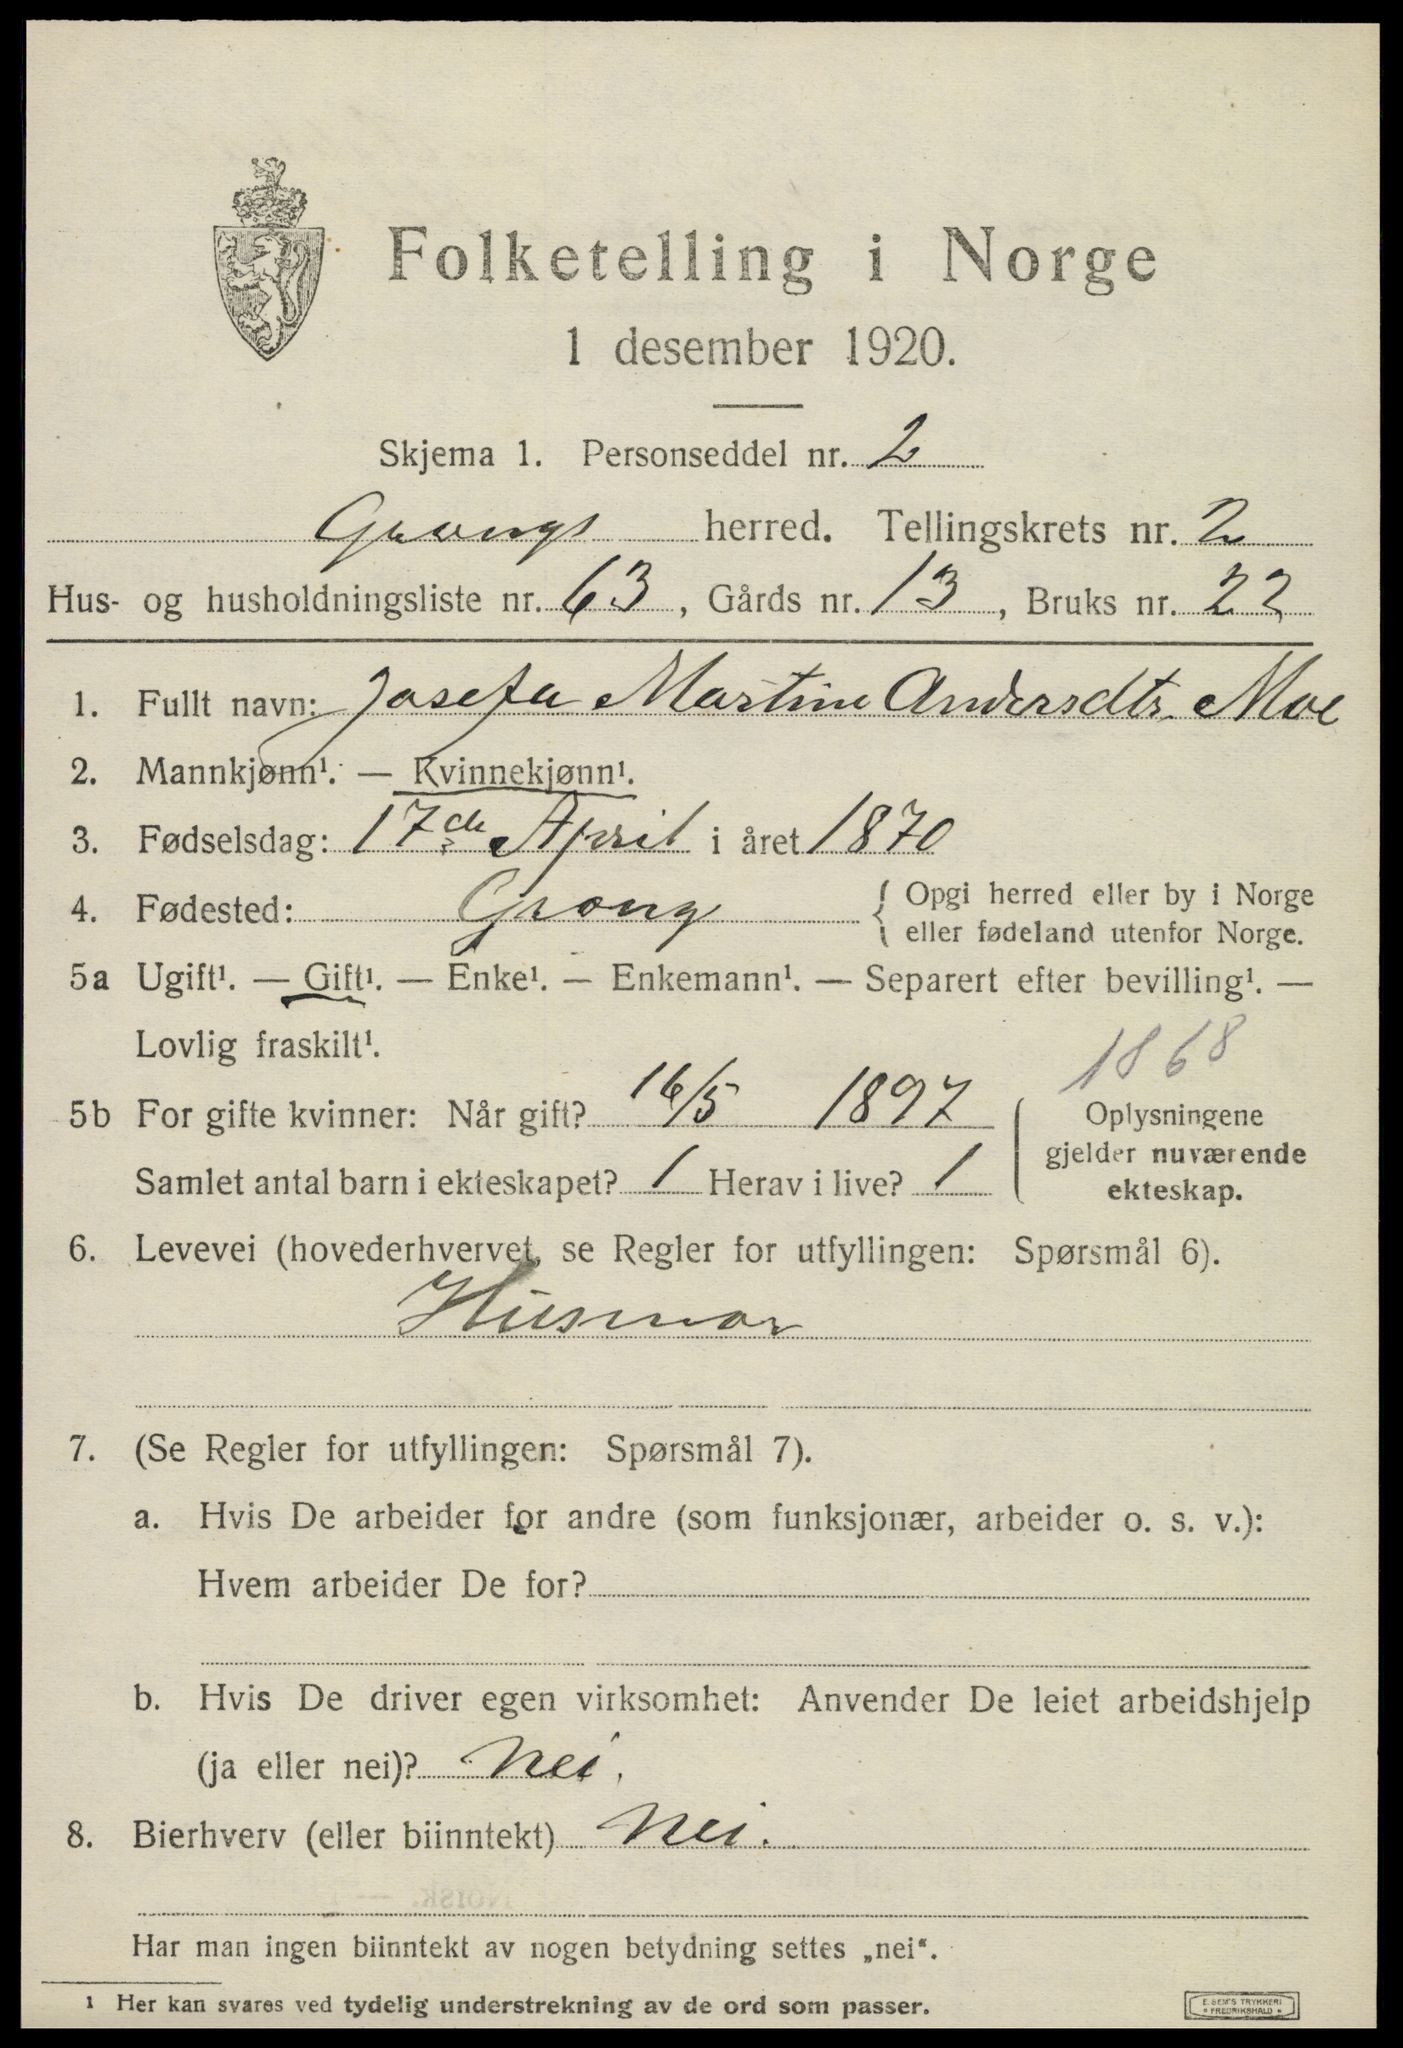 Folketelling i Norge
1 desember 1920.
Skjema 1. Personseddel nr. 2
Grongs herred. Tellingskrets nr. 2
Hus- og husholdningsliste nr. 63, Gårds nr. 13, Bruks nr. 22
1. Fullt navn: Josefa Martine Andersdtr. Moe
2. Mannkjønn¹. — Kvinnekjønn¹.
3. Fødselsdag: 17de April i året 1870
4. Fødested: Grong { Opgi herred eller by i Norge
eller fødeland utenfor Norge.
5a Ugift¹. — Gift¹. — Enke¹. — Enkemann¹. — Separert efter bevilling¹. —
Lovlig fraskilt¹.
1868
5b For gifte kvinner: Når gift? 16/5 1897
Samlet antal barn i ekteskapet? 1 Herav i live? 1
Oplysningene
gjelder nuværende
ekteskap.
6. Levevei (hovederhvervet, se Regler for utfyllingen: Spørsmål 6).
Husmor
7. (Se Regler for utfyllingen: Spørsmål 7).
a. Hvis De arbeider for andre (som funksjonær, arbeider o. s. v.):
Hvem arbeider De for?
b. Hvis De driver egen virksomhet: Anvender De leiet arbeidshjelp
(ja eller nei)? Nei.
8. Bierhverv (eller biinntekt) Nei.
Har man ingen biinntekt av nogen betydning settes „nei“.
1 Her kan svares ved tydelig understrekning av de ord som passer.
E. SEM'S TRYKKERI
* FREDRIKSHALD *